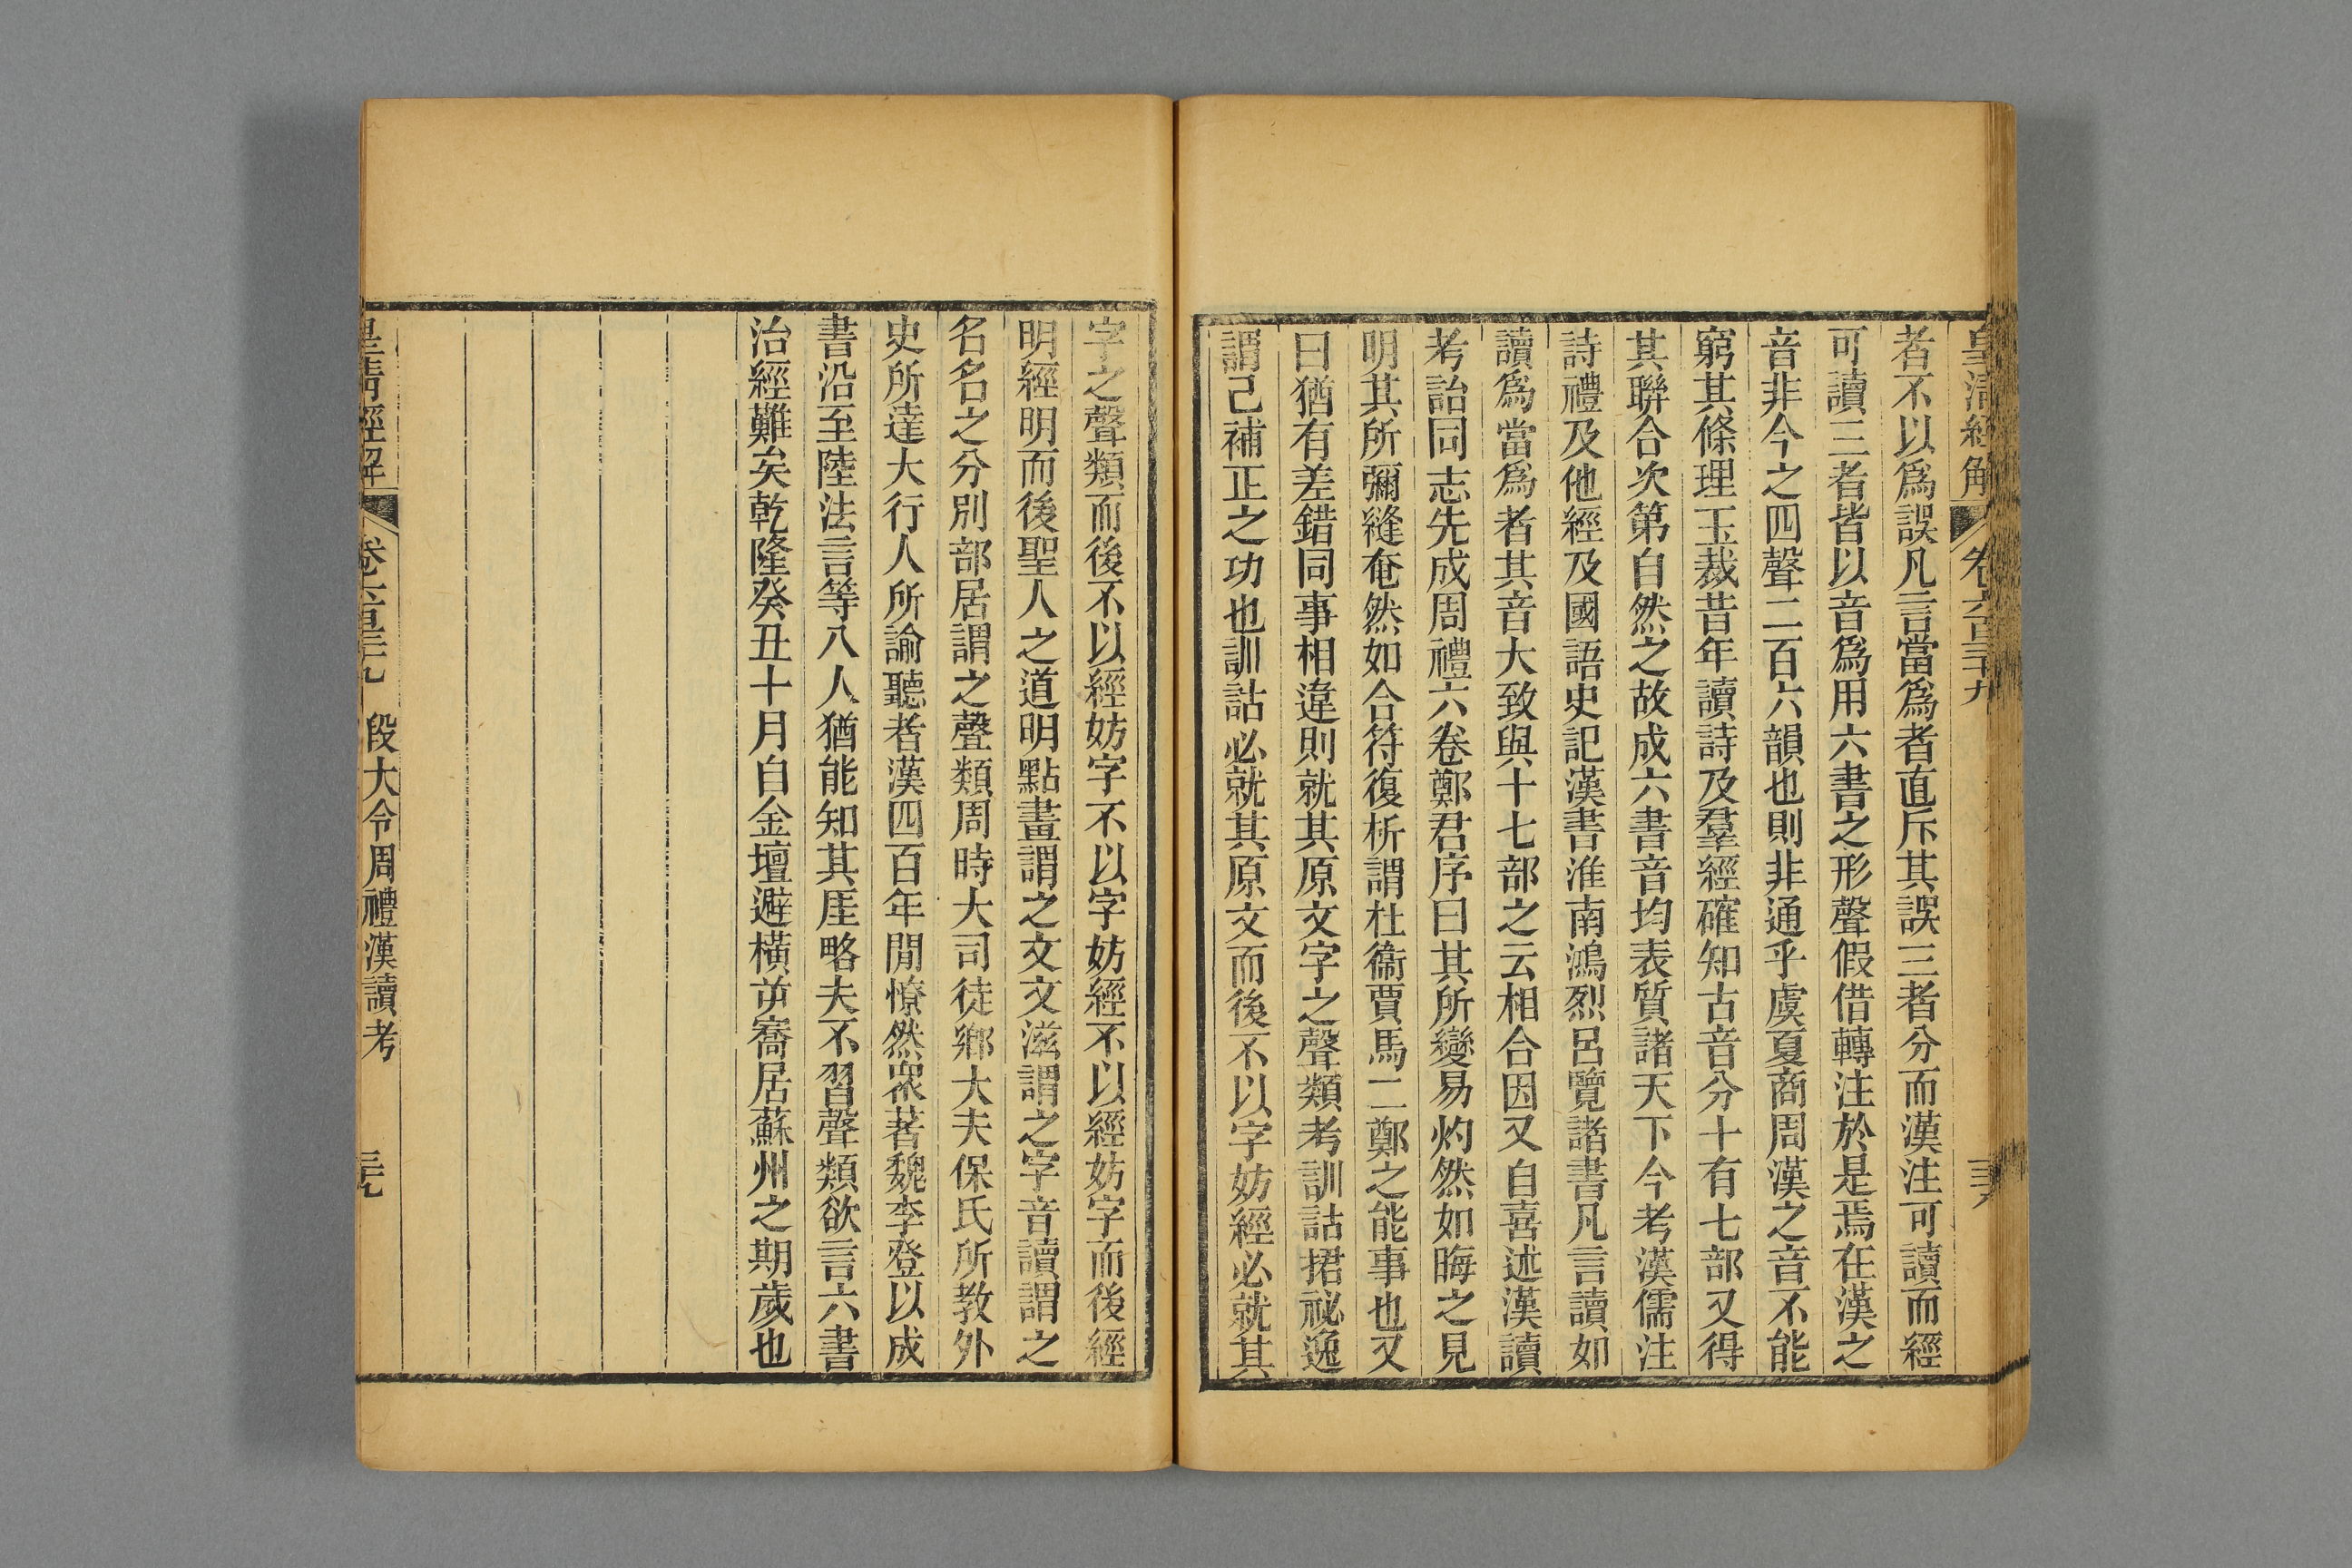 皇清經解 卷六百三十九 三十八
者不以爲誤凡言當爲者直斥其誤三者分而漢注可讀而經
可讀三者皆以音爲用六書之形聲假借轉注於是焉在漢之
音非今之四聲二百六韻也則非通乎虞夏商周漢之音不能
窮其條理玉裁昔年讀詩及羣經確知古音分十有七部又得
其聯合次第自然之故成六書音均表質諸天下今考漢儒注
詩禮及他經及國語史記漢書淮南鴻烈呂覽諸書凡言讀如
讀爲當爲者其音大致與十七部之云相合因又自喜述漢讀
考詒同志先成周禮六卷鄭君序曰其所變易灼然如晦之見
明其所彌縫奄然如合符復析謂杜衞賈馬二鄭之能事也又
曰猶有差錯同事相違則就其原文字之聲類考訓詁捃祕逸
謂己補正之功也訓詁必就其原文而後不以字妨經必就其
字之聲類而後不以經妨字不以字妨經不以經妨字而後經
明經明而後聖人之道明點畫謂之文文滋謂之字音讀謂之
名名之分別部居謂之聲類周時大司徒鄉大夫保氏所教外
史所達大行人所諭聽者漢四百年閒憭然衆著魏李登以成
書沿至陸法言等八人猶能知其厓略夫不習聲類欲言六書
治經難矣乾隆癸丑十月自金壇避橫屰寫居蘇州之期歲也
皇清經解 卷六百三十九 段大令周禮漢讀考 三十九